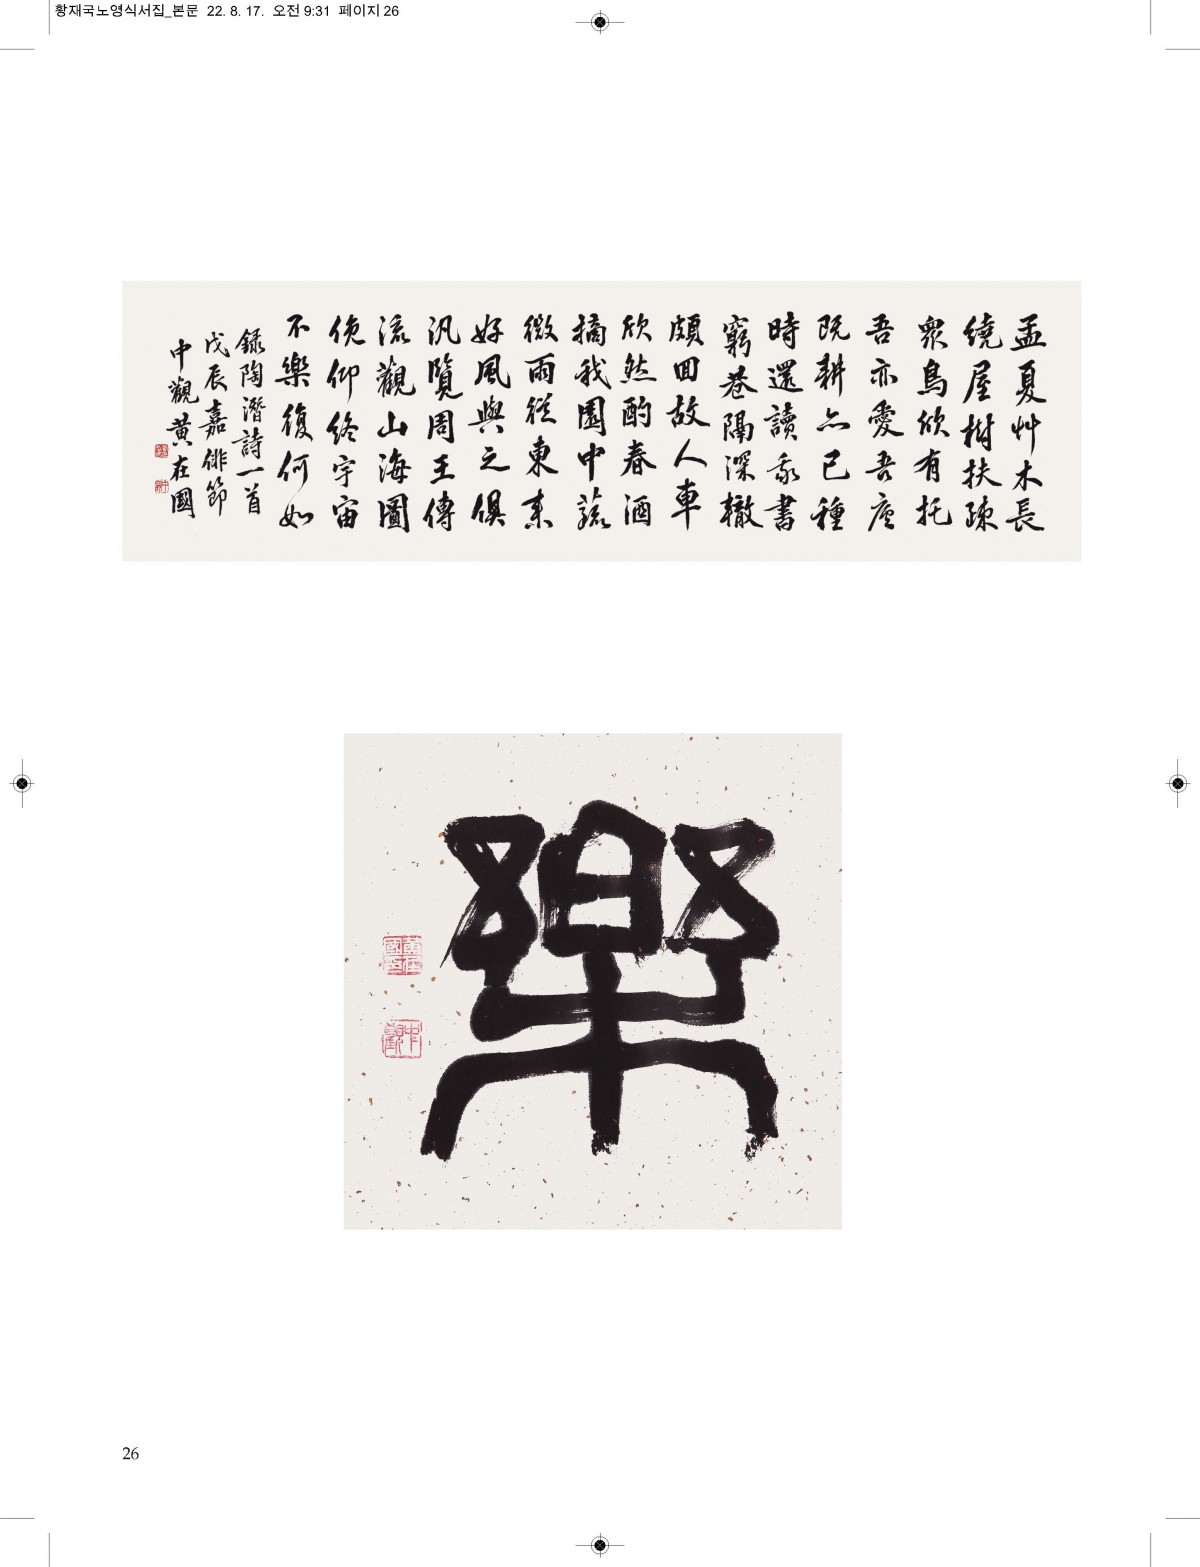 황재국노영식서집_본문 22. 8. 17. 오전 9:31 페이지 26
孟夏艸木長
繞屋樹扶疎
衆鳥欣有托
吾亦愛吾庐
既耕亦已種
時還讀我書
窮巷隔深轍
頗回故人車
欣然酌春酒
摘我園中蔬
微雨從東来
好風與之俱
汎覽周王傳
流觀山海圖
俛仰終宇宙
不樂復何如
録陶潛詩一首
戊辰嘉俳節
中觀黄在國
樂
黄在國印
中觀
26